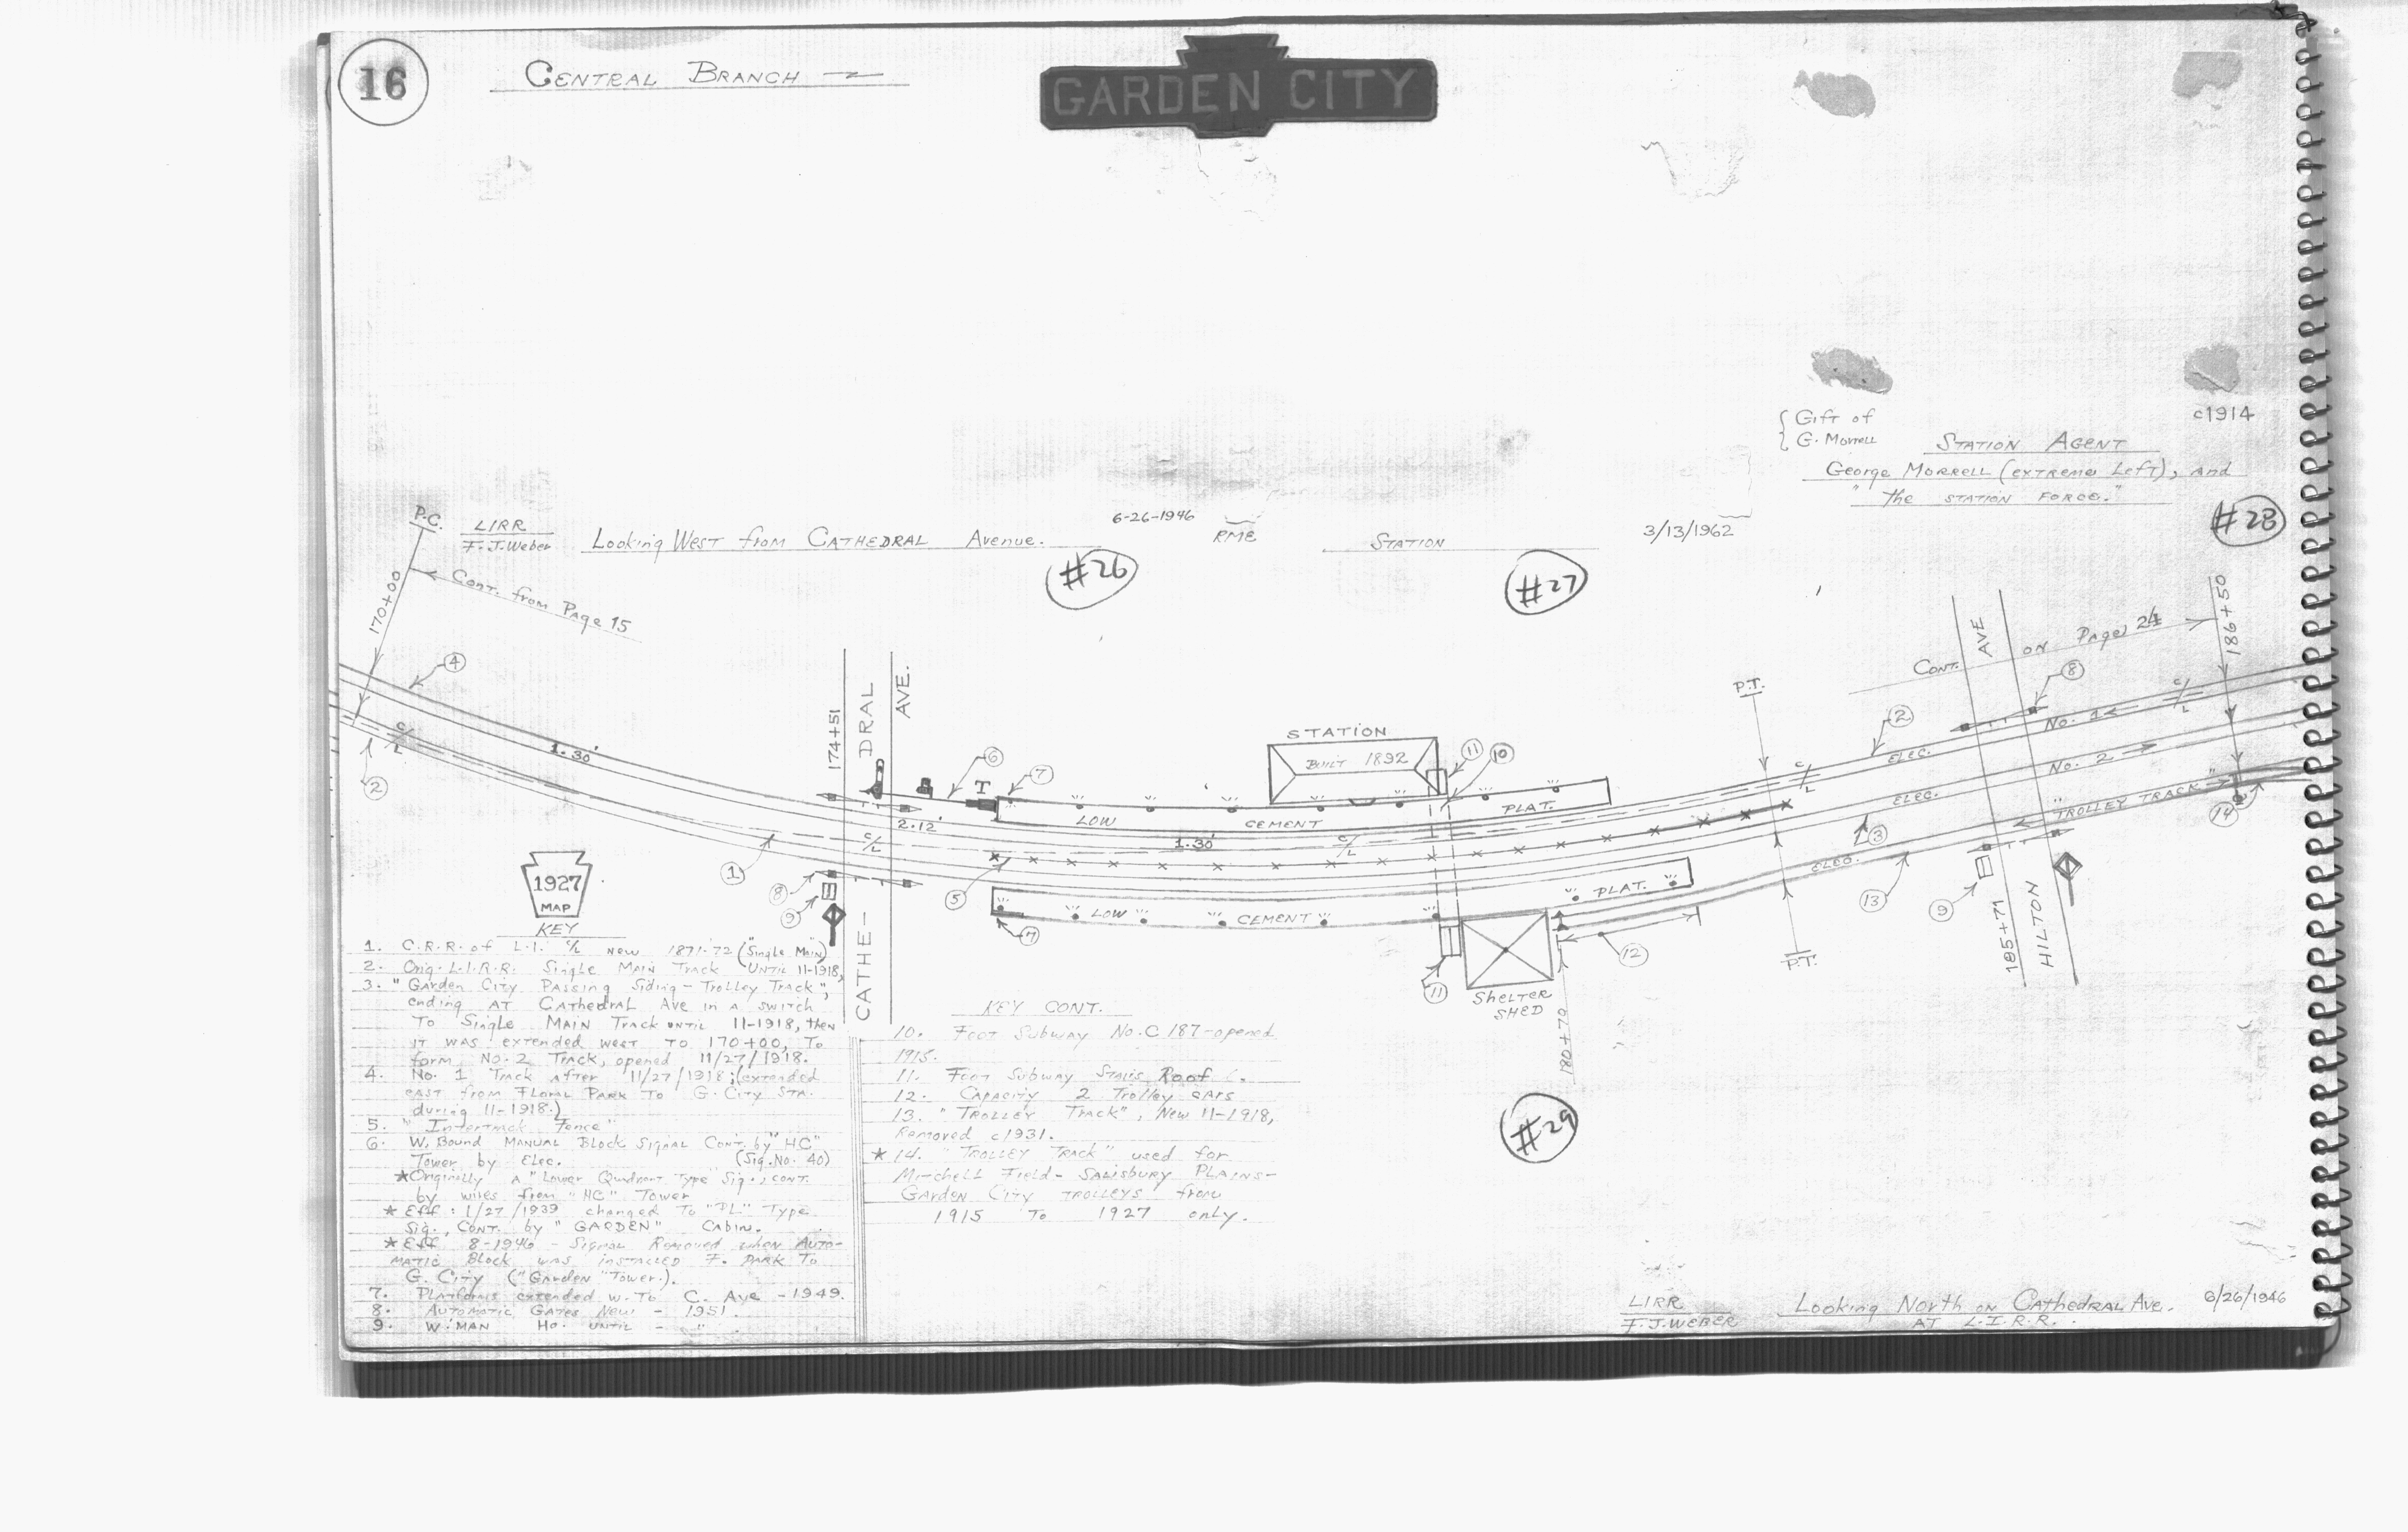 16
CENTRAL BRANCH
GARDEN CITY
{ Gift of
{ G. Morrell
c1914
STATION AGENT
George MORRELL (extreme Left), and
"the STATION FORCE."
#28
P.C.
LIRR
F.J. Weber
Looking West from CATHEDRAL Avenue.
6-26-1946
#26
RME
STATION
3/13/1962
#27
170+00
Cont. from Page 15
Cont. on Page 24
186+50
4
2
C/L
1.30'
1
174+51
CATHE-DRAL
AVE.
2.12'
C/L
6
T
7
STATION
BUILT 1892
11
10
LOW CEMENT PLAT.
1.30'
C/L
5
8
9
7
LOW CEMENT PLAT.
11
SHELTER
SHED
180+70
12
P.T.
P.T.
C/L
2
ELEC.
No. 1
ELEC.
No. 2
3
ELEC.
"TROLLEY TRACK"
13
9
8
14
185+71
HILTON
AVE
C/L
#29
1927
MAP
KEY
1. C.R.R. of L.I. C/L New 1871-72 ("Single Main")
2. Orig. L.I.R.R. Single Main Track UNTIL 11-1918,
3. "Garden City Passing Siding - Trolley Track",
ending AT CATHEDRAL Ave in a switch
To Single MAIN Track UNTIL 11-1918, then
it was extended west TO 170+00, To
form No. 2 Track, opened 11/27/1918.
4. No. 1 Track After 11/27/1918; (extended
east from Floral PARK TO G. City STA.
during 11-1918.)
5. "Intertrack Fence"
6. W. Bound MANUAL Block Signal Cont. by "HC"
Tower by Elec. (Sig. No. 40)
★ Originally a "Lower Quadrant Type Sig., cont.
by wires from "HC" Tower
★ Eff: 1/27/1939 changed To "PL" Type
Sig., CONT. by "GARDEN" Cabin.
★ Eff 8-1946 - Signal Removed when AUTO-
MATIC Block was installed F. PARK To
G. City ("Garden" Tower.).
7. Platforms extended w. To C. Ave - 1949.
8. AUTOMATIC GATES New - 1951.
9. W'MAN Ho. UNTIL - "
KEY CONT.
10. FOOT SUBWAY No. C 187 - opened
1915.
11. FOOT SUBWAY STAIRS Roof
12. Capacity 2 Trolley cars
13. "TROLLEY Track", New 11-1918,
Removed c1931.
★ 14. "TROLLEY TRACK" used for
Mitchell Field - SALISBURY PLAINS-
GARDEN CITY TROLLEYS from
1915 To 1927 only.
LIRR
F.J. WEBER
Looking North on CATHEDRAL Ave.
AT L.I.R.R.
6/26/1946